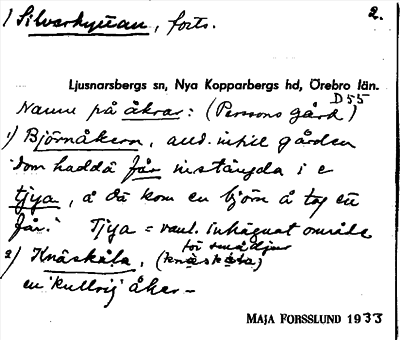 1) Silverhyttan, forts.
2.
Ljusnarsbergs sn, Nya Kopparbergs hd, Örebro län.
D 55
Namn på åkrar: (Perssons gård)
1) Björnåkern, all. intill gården
"dom haddä får instängda i e
tjya, å då kom en björn å tog ett
får." Tjya = vanl. inhägnat område
för smådjur
2) Knäskåla, (knäskåla)
en kullrig åker –
MAJA FORSSLUND 1933